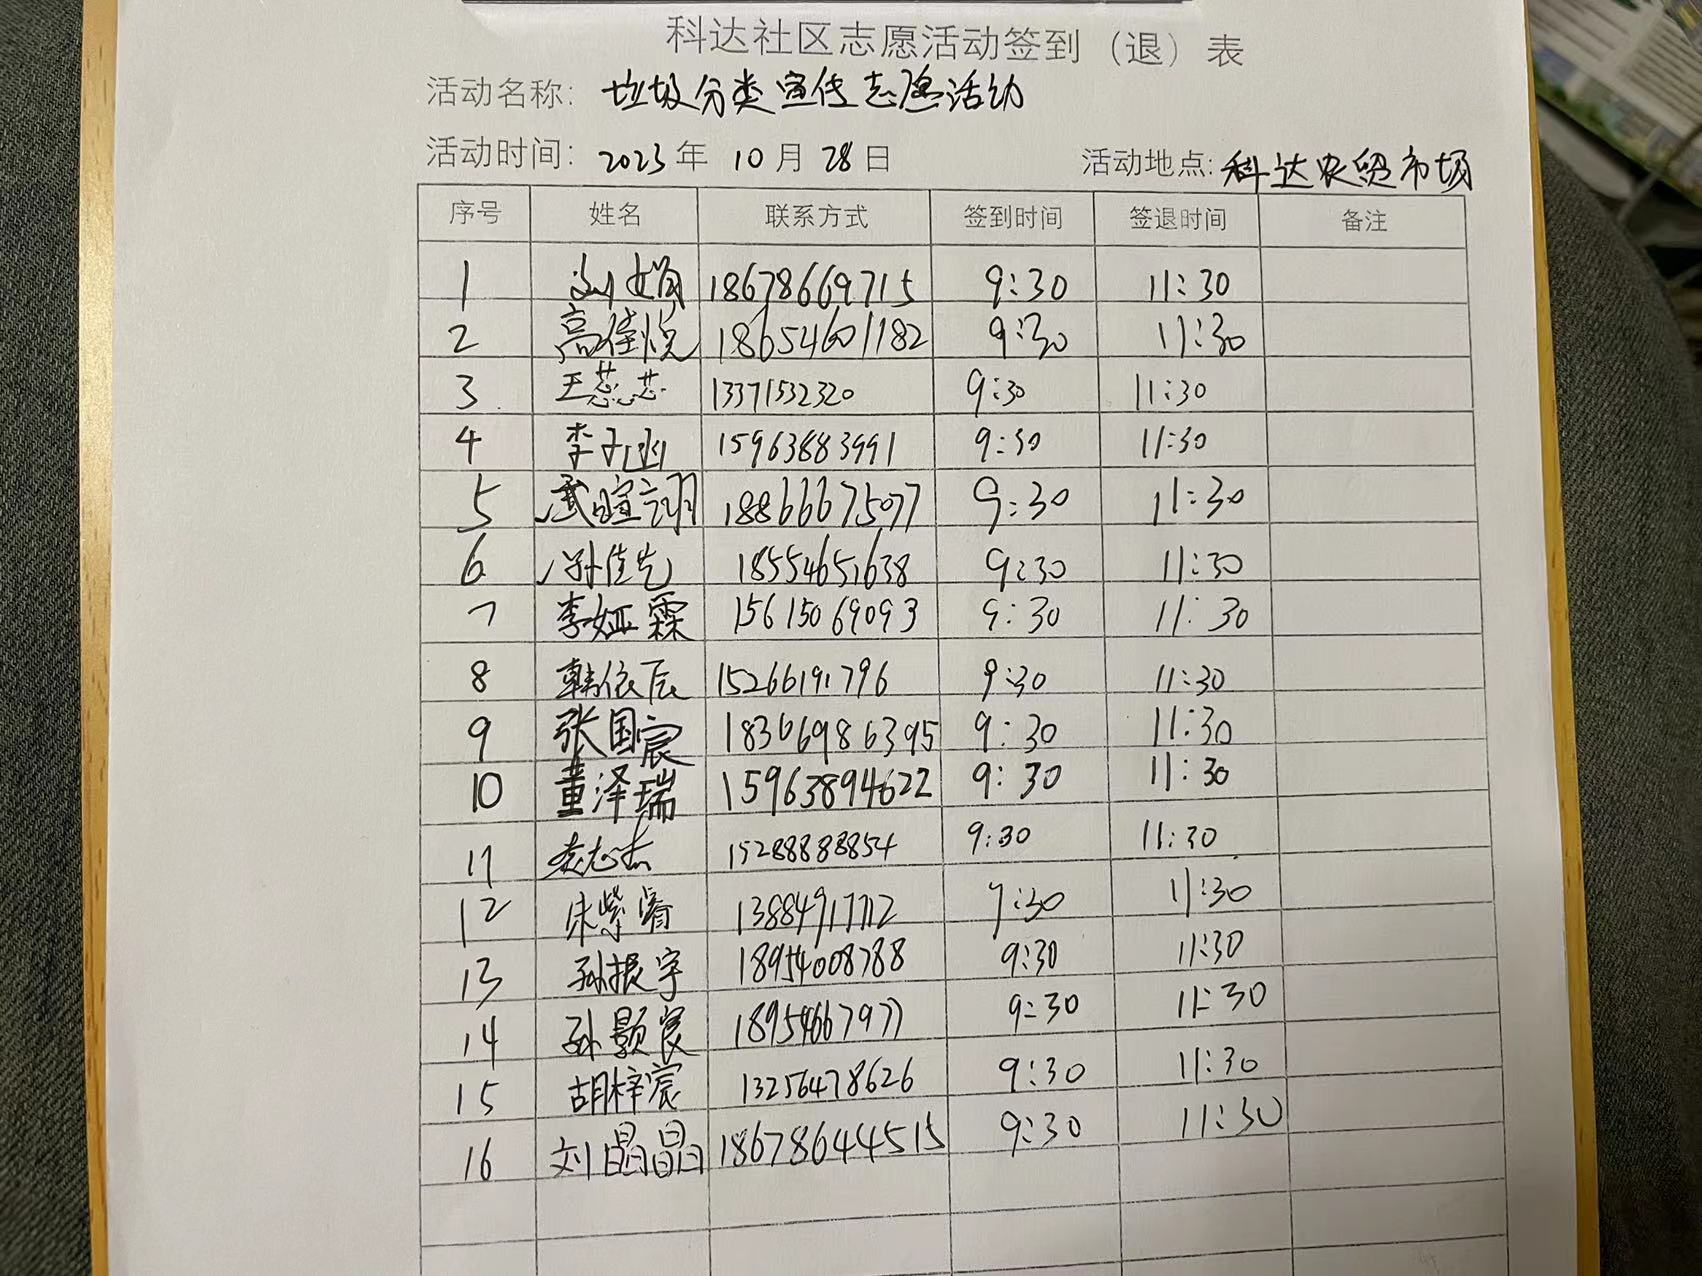 科达社区志愿活动签到（退）表
活动名称: 垃圾分类宣传志愿活动
活动时间: 2023年 10月 28日 活动地点: 科达农贸市场
序号 姓名 联系方式 签到时间 签退时间 备注
1 刘娟 18678669715 9:30 11:30
2 高佳悦 18654601182 9:30 11:30
3 王蕊芯 13371532320 9:30 11:30
4 李子函 15963883991 9:30 11:30
5 武暄翊 18866675077 9:30 11:30
6 孙佳 18554651638 9:30 11:30
7 李娅霖 15615069093 9:30 11:30
8 韩依辰 15266191796 9:30 11:30
9 张国宸 18366986395 9:30 11:30
10 董泽瑞 15963894622 9:30 11:30
11 志杰 15288888854 9:30 11:30
12 紫睿 13884917712 9:30 11:30
13 孙振宇 18954008788 9:30 11:30
14 孙颢宸 18954667977 9:30 11:30
15 胡梓宸 13256478626 9:30 11:30
16 刘晶晶 18678644515 9:30 11:30